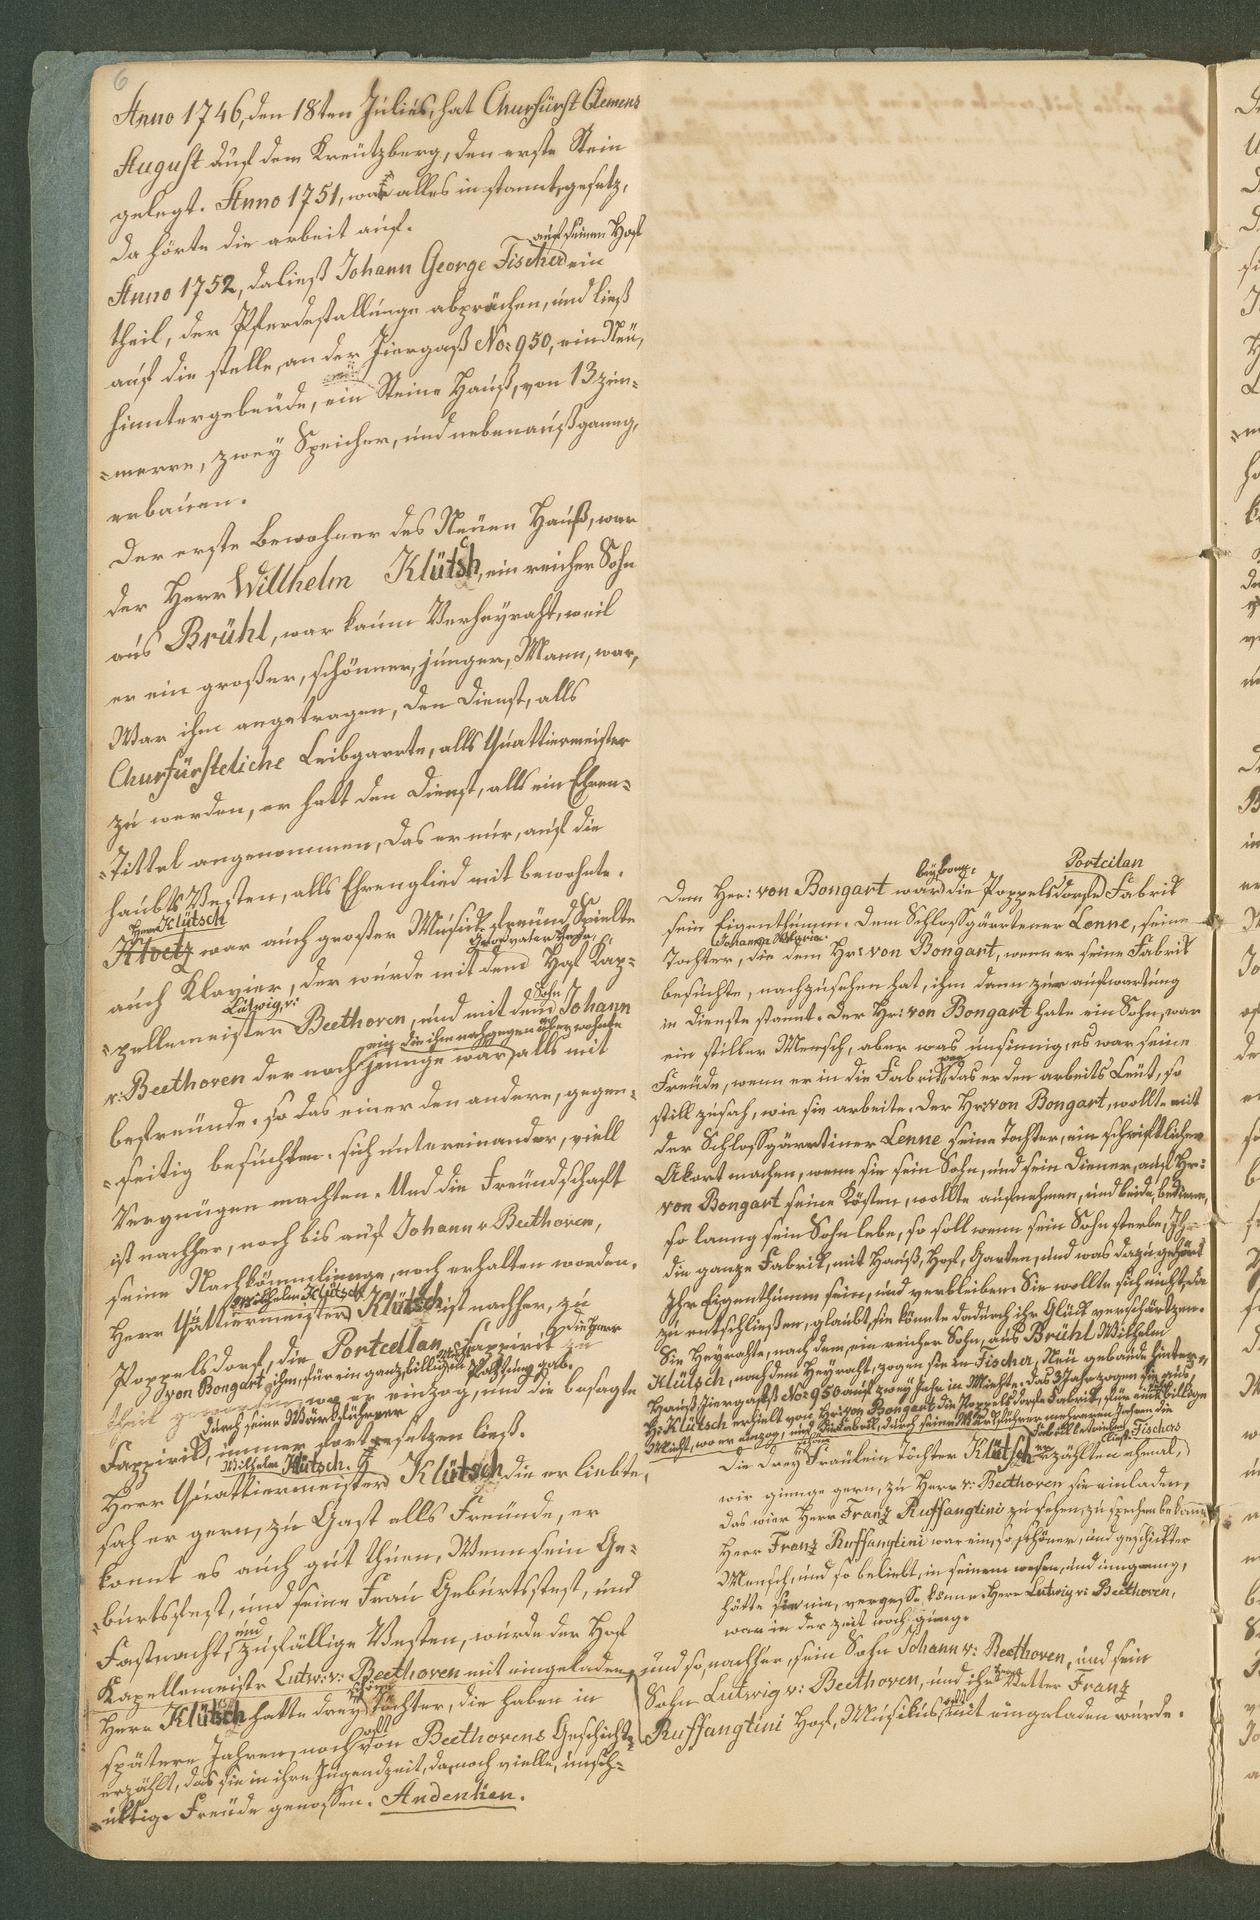 6
Anno 1746, den 18ten Julius, hat Churfürst Clemens
August auf dem Kreützberg, den erste Stein
gelegt. Anno 1751, war alles in stannt gesetz,
da hörte die arbeit auf.
auf seinen Hof
Anno 1752, da ließ Johann George Fischer ein
theil, der Pferdestallunge abprächen, und ließ
auf die stelle, an der Jiergaß No: 950, ein Neü,
hinntergebeüde, ein Steine Hauß, von 13 zim-
-merre, zwey Speicher, und nebenaußganng,
erbauen.
Der erste Bewohner des Neüen Hauß, war
der Herr Willhelm Klütsch, ein reicher Sohn
aus Brühl, war kaum Verheyraht, weil
er ein großer, schönner, junger, Mann, war,
War ihm angetragen, den Dienst, alls
Churfürsteliche Leibgarrte, alls Quattiermeister
zu werden, er hatt den Dienst, alls ein Ehren-
-Tittel angenommen, das er nur, auf die
haubts Vesten, alls Ehrenglied mit bewohnte.
Herr Klütsch
Kloetz war auch großer Musick, freünd, Spielte
Grosvater
auch Klavier, der wurde mit dem Hof Kap-
Lutwig, v: Sohn
-pellemeister Beethoven, und mit dem Johann
die ihm nah gegen über wohnte
v: Beethoven der noch junge war, alls mit
befreünde. so das einer den andere, gegen-
-seitig besuchten. sich untereinander, viell
Vergnügen machten. Und die Freündschaft
ist nachher, noch bis auf Johann v Beethoven,
seine Nachkömmlinnge, noch erhalten worden.
Wilhelm Klütsch
Herr Quattiermeister Klütsch ist nachher, zu
die Herr
Poppelsdorf, die Portcellan Fappirik
von Bongart ihm, für ein ganz billigen Pachtung gab.
wo er einzog, und die besagte
durch seine Wärkführer
Fappirik, immer fortsesetzen ließ.
Wilhelm Klütsch.
Herr Quattiermeister Klütsch die er liebte,
sah er gern, zu Gast alls Freünde, er
konnt es auch gut thuen, Wenn sein Ge-
-burtsfest, und seine Frau Geburtsfest, und
und
Fastnacht, zufällige Vesten, wurde der Hof
Kapellemeistr Lutw: v: Beethoven mit eingeladen,
schöne
Herr Klütsch hatte drey Töchter, die haben in
oft
spätere Jahren, noch von Beethovens Geschicht
erzählt, das sie in ihre Jugendzeit, da noch vielle, unsch-
-ültige Freude genossen. Andenken.
Portcilan
Dem Her: von Bongart war die Poppelsdorfe Fabrik
sein Eigenthumm. Dem Schlossgärtener Lenne, seine
Johanna Maria.
Tochter, die dem Hr: von Bongart, wenn er seine Fabrik
besuchte, nachzusehen hat, ihm dann zur aufwartung
in Dienste stannt. Der Hr: von Bongart hate ein Sohn, war
ein stiller Mensch, aber was unsinnig, es war seine
war
Freüde, wenn er in die Fabrik, das er den arbeits Leüt, so
still zusah, wie sie arbeite. Der Hr: von Bongart, wollte mit
der Schlossgärrtiner Lenne seine Tochter, ein schriftlicher
Akort machen, wenn sie sein Sohn, und sein Diener, auf Hr:
von Bongart seine Kösten, wollte aufnehmen, und beide bedinen,
so lanng sein Sohn lebe, so soll wenn sein Sohn sterbe, Ihr
die ganze Fabrik, mit Hauß, Hof, Garten, und was dazu gehört
Ihr Eigenthumm sein, und verbleiben. Sie wollte sich nicht da
zu entschließen, glaubt, sie könnte dadurch ihr Glück verschärtzen.
Sie Heyrahte, nach dem, ein reicher Sohn, aus Brühl Wilhelm
Klütsch, nach dem Heyraht, zogen sie in Fischer, Neü gebaude hinter-
Hauß Jiergaß No: 950 auf zwey Jahr in Miethe. Das 3 Jahr zogen sie aus
Hr: Klütsch erhielt von Hr: von Bongart die Poppelsdorfe Fabrik, für eine billige
Miehl, wo er einzog, und die Fabrik, durch seine Wärkführer mehreren Jahren die
Fischers
Die drey Fräulein Töchter Klütsch erzählten ehmal,
wir gienge gern, zu Herr v: Beethoven sie einladen,
das wier Herr Franz Ruffanglini zu sehen, zu spechen bekomme
Herr Franz Ruffanglini war ein, so schöner, und geschickter
Mensch, und so beliebt, in seinem wesen, und umgang,
hätte sie nie, vergesse, könne. Herr Lutwig v: Beethoven,
war in der zeit noch gung.
und so, nachher, sein Sohn Johann v: Beethoven, und sein
Sohn Lutwig v: Beethoven, und ihr Vetter Franz
oft
Ruffanglini Hof, Musikus, mit eingeladen wurde.